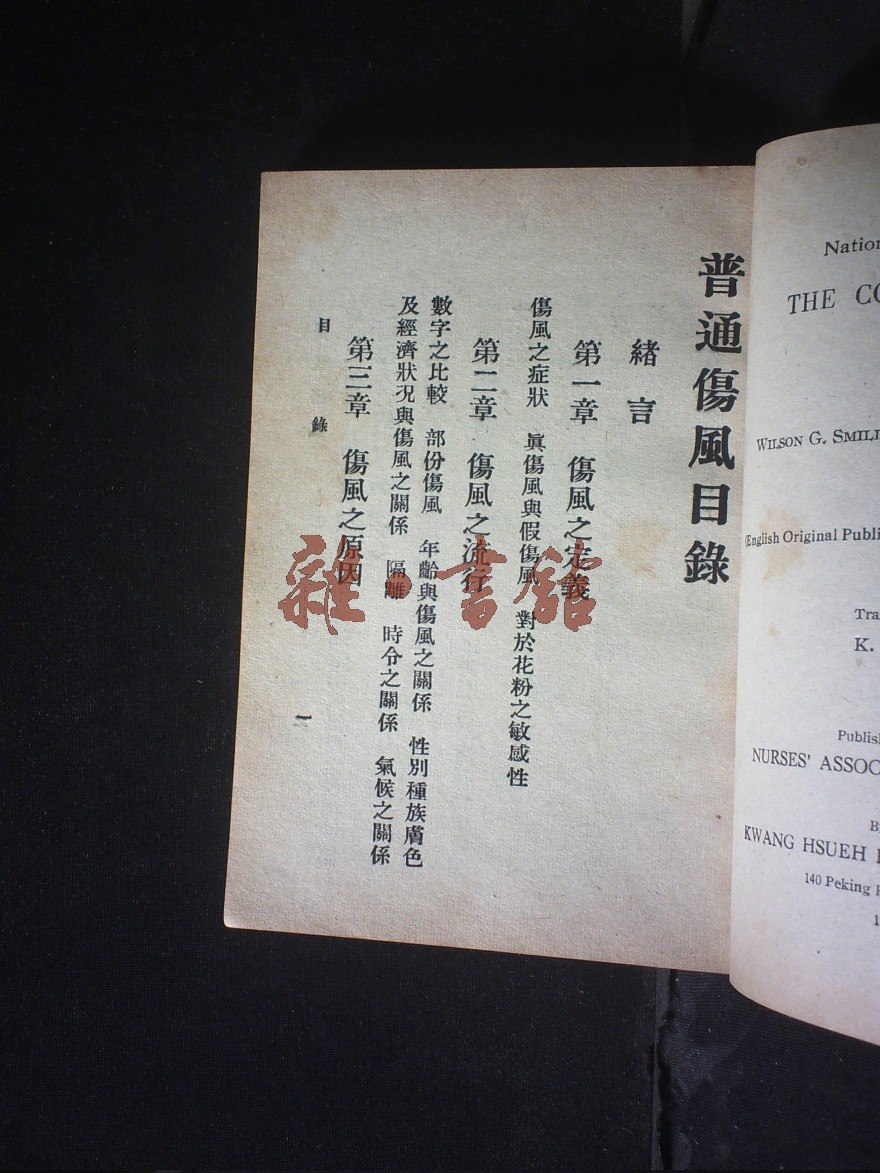 普通傷風目錄
緒言
第一章 傷風之定義
傷風之症狀 眞傷風與假傷風 對於花粉之敏感性
第二章 傷風之流行
數字之比較 部份傷風 年齡與傷風之關係 性別種族膚色
及經濟狀况與傷風之關係 隔離 時令之關係 氣候之關係
第三章 傷風之原因
目錄
一
雜·書館
Nation
THE CO
WILSON G. SMILI
(English Original Publi
Tra
K.
Publis
NURSES' ASSOC
B
KWANG HSUEH
140 Peking
1